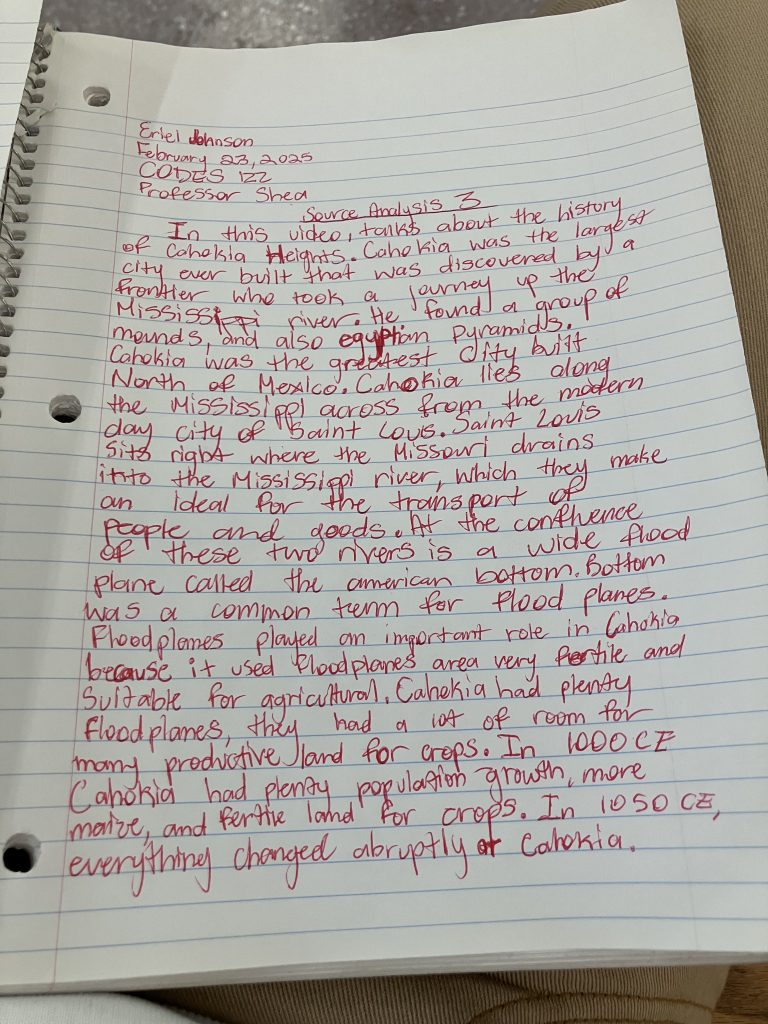 Eriel Johnson
February 23, 2025
CODES 122
Professor Shea
Source Analysis 3
In this video, talks about the history
of Cahokia Heights. Cahokia was the largest
city ever built that was discovered by a
frontier who took a journey up the
Mississippi river. He found a group of
mounds, and also egyptian pyramids.
Cahokia was the greatest city built
North of Mexico. Cahokia lies along
the Mississippi across from the modern
day city of Saint Louis. Saint Louis
sits right where the Missouri drains
into the Mississippi river, which they make
an ideal for the transport of
people and goods. At the confluence
of these two rivers is a wide flood
plane called the american bottom. Bottom
was a common term for flood planes.
Floodplanes played an important role in Cahokia
because it used floodplanes area very fertile and
suitable for agricultural. Cahokia had plenty
floodplanes, they had a lot of room for
many productive land for crops. In 1000 CE
Cahokia had plenty population growth, more
maize, and fertile land for crops. In 1050 CE,
everything changed abruptly at Cahokia.